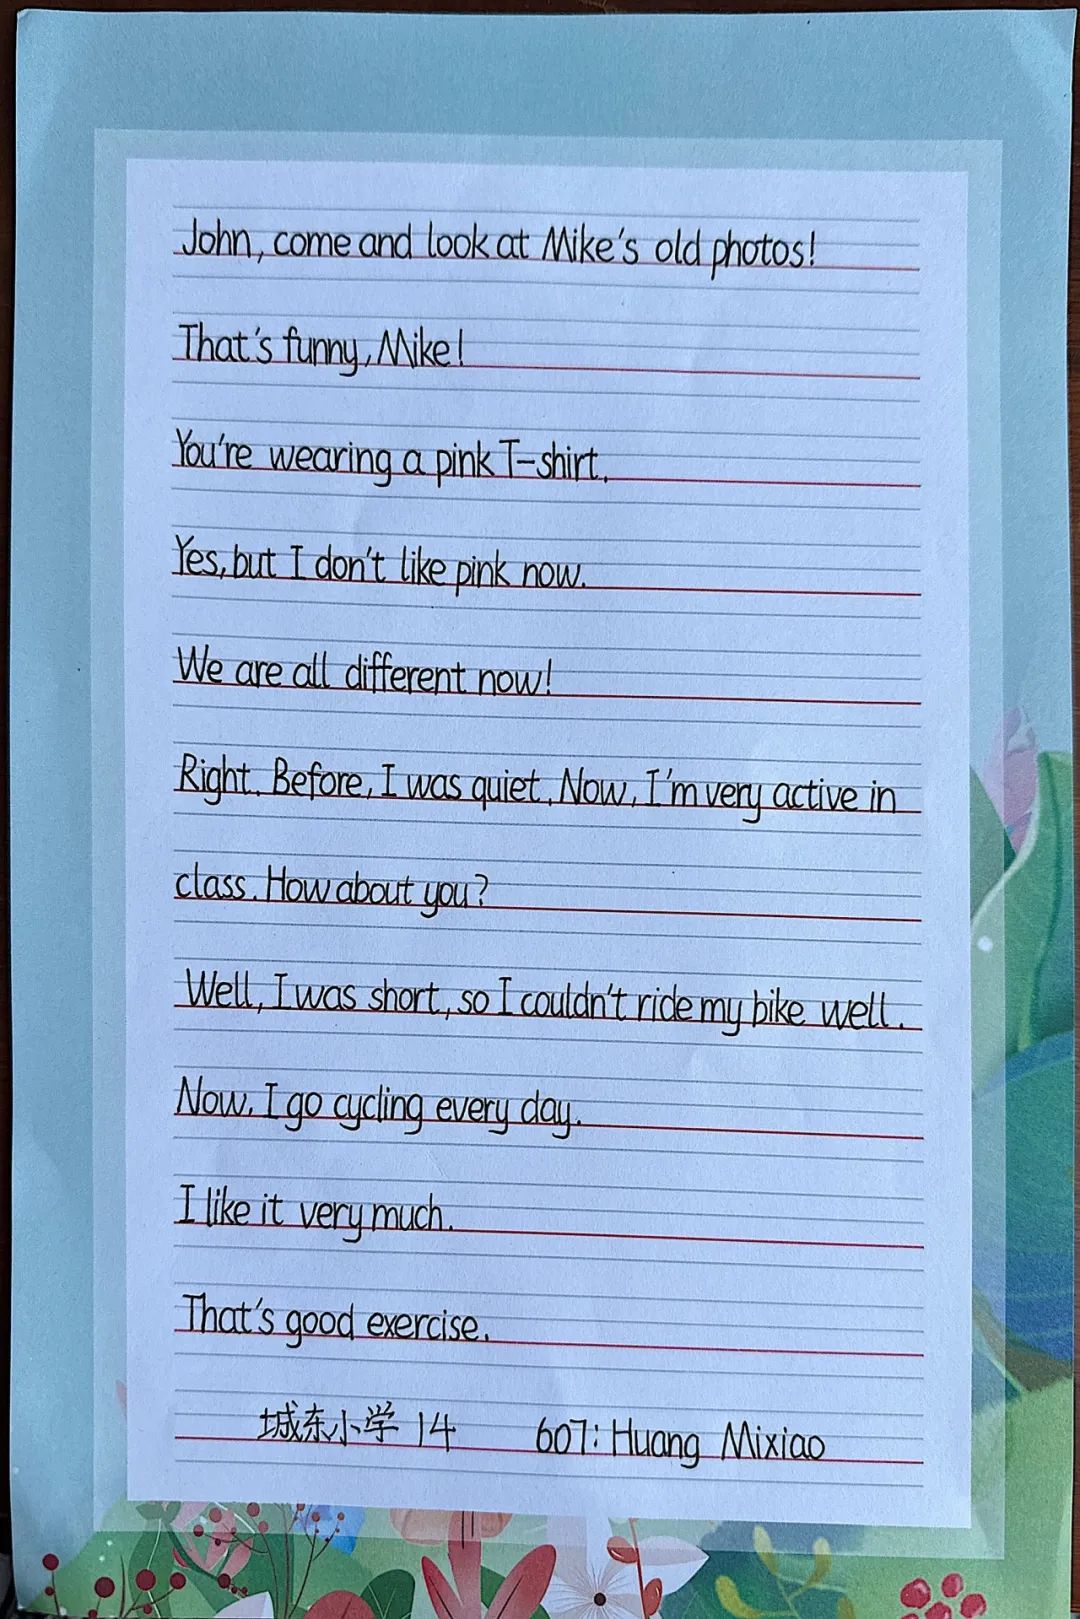 John, come and look at Mike's old photos!
That's funny, Mike!
You're wearing a pink T-shirt.
Yes, but I don't like pink now.
We are all different now!
Right. Before, I was quiet. Now, I'm very active in
class. How about you?
Well, I was short, so I couldn't ride my bike well.
Now, I go cycling every day.
I like it very much.
That's good exercise.
城东小学 14 607: Huang Mixiao